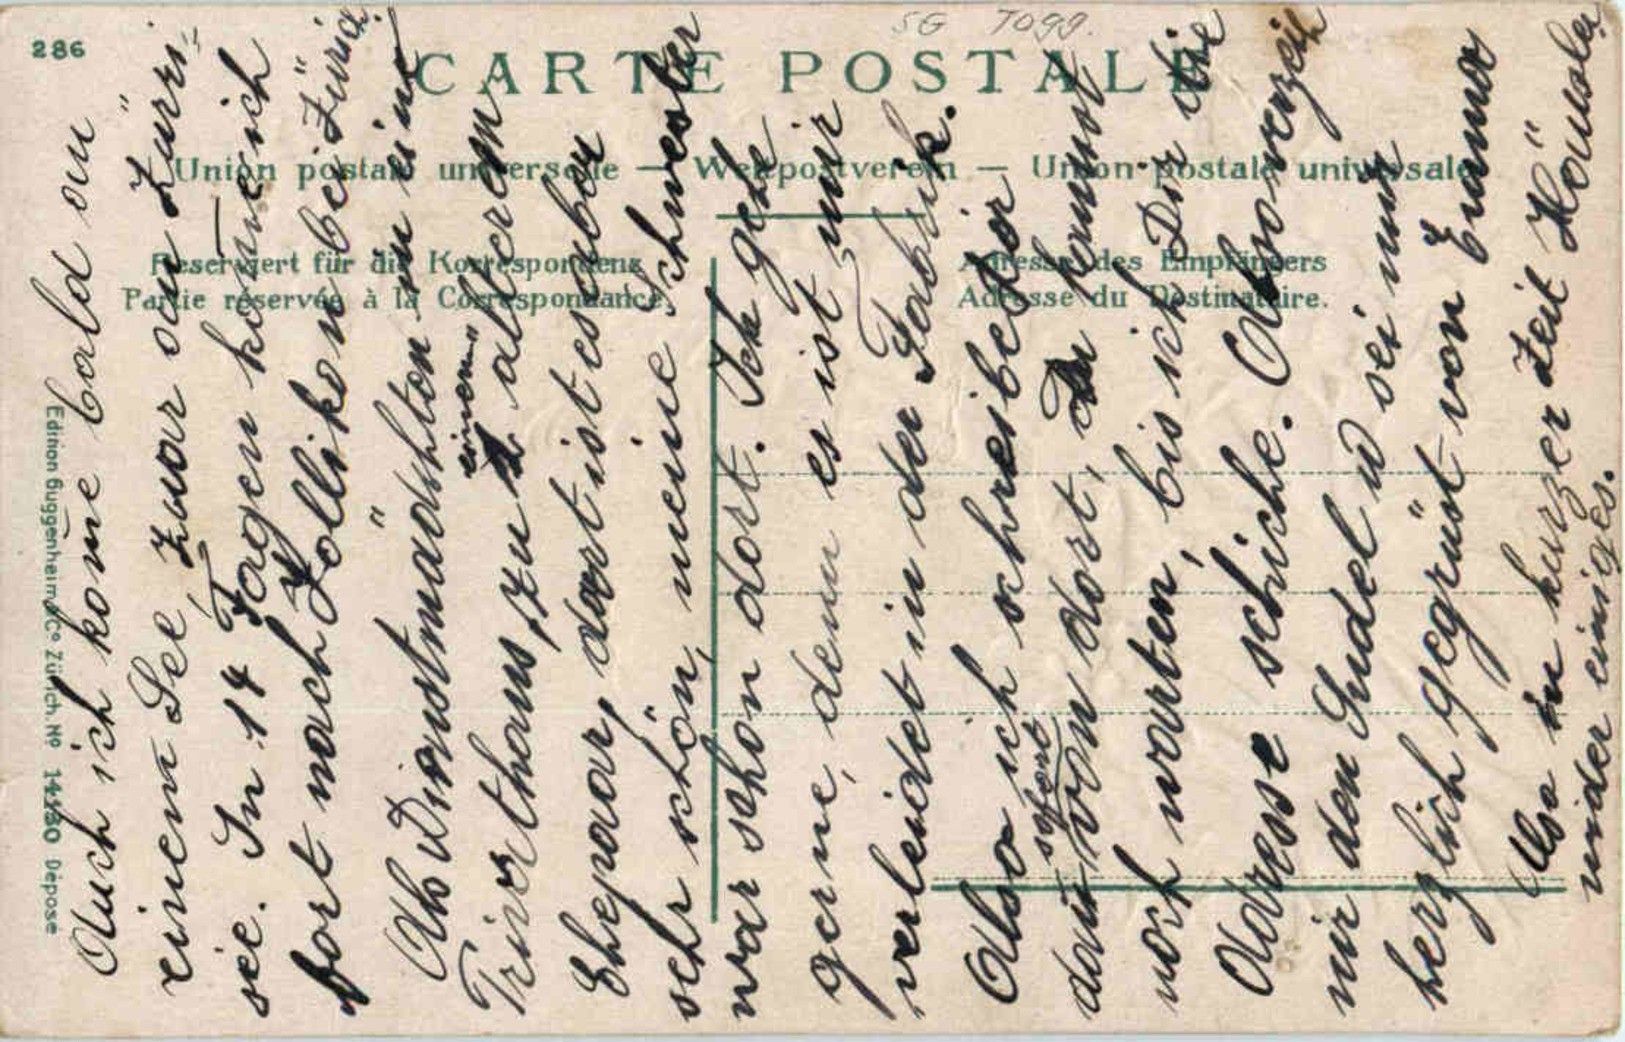 SG Togg.
286
CARTE POSTALE
Union postale universelle — Weltpostverein — Union postale universale
Reserviert für die Korrespondenz
Partie réservée à la Correspondance
Adresse des Empfängers
Adresse du Destinataire.
Edition Guggenheim & Co Zürich. No 14980 Déposé
Auch ich kom̄e bald an
einem See zwar am Züri-
see. In 14 Tagen kom̄e ich
fort nach Zollikon bei Zürich
Als Dienstmädchten in ein
Privathaus, zu einem älterem
Ehepaar, dort ist es aber
sehr schön, meine Schwester
war schon dort. Ich gehe
gerne, denn es ist mir
verleidet in der Fabrik.
Also ich schreibe dir
dann von sofort dort, du kannst
noch warten, bis ich Dir die
Adresse schicke. Also verzeih
mir den Sudel u sei nun
herzlich gegrüst von Emma
Also in kurzer Zeit Häusler
wider einiges.